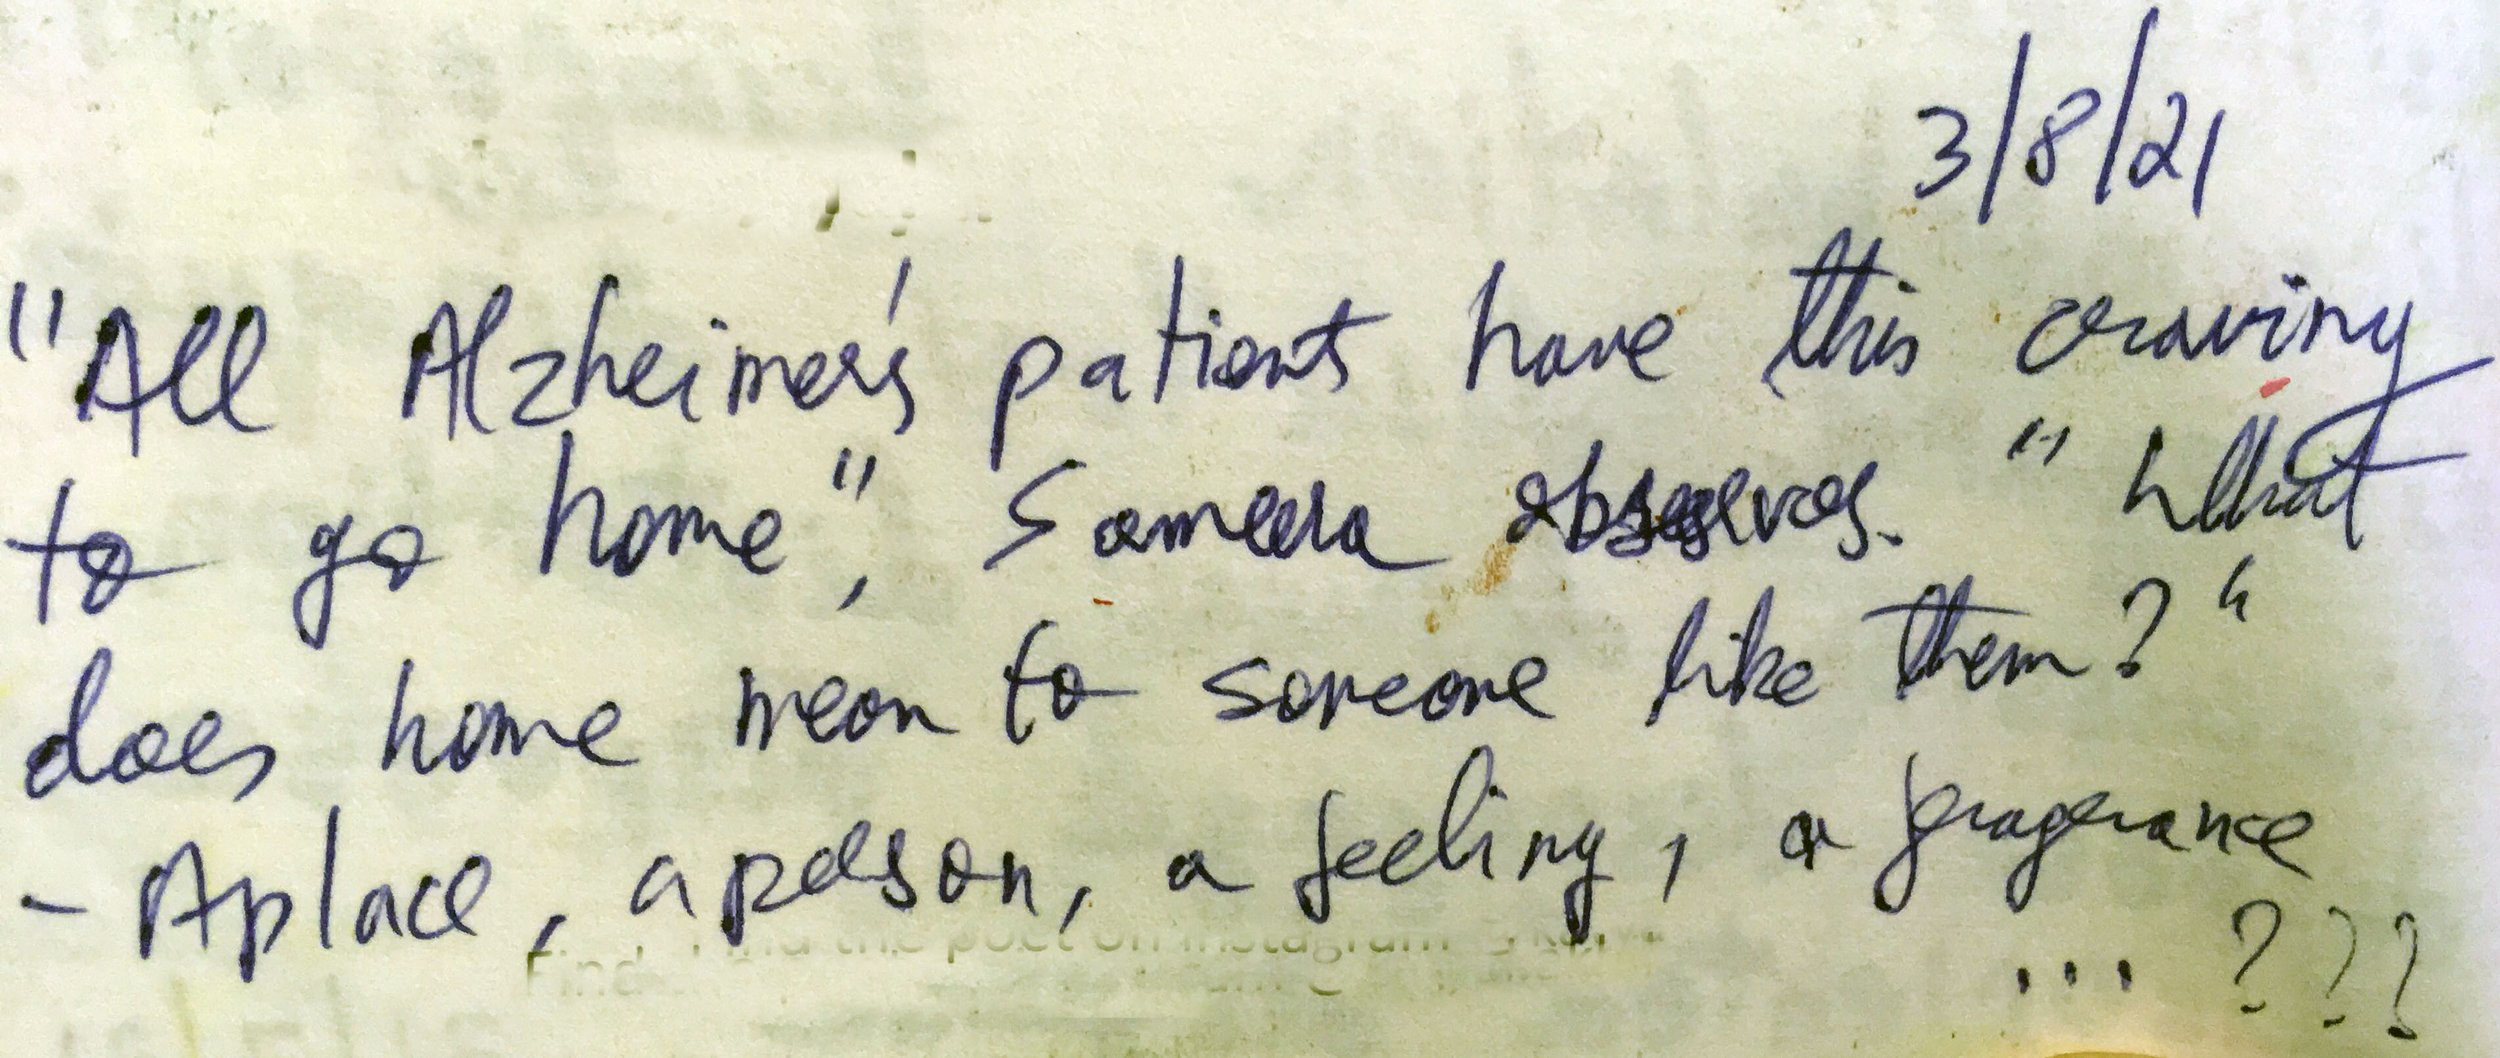 3/8/21
"All Alzheimer's patients have this craving
to go home", Sameera observes. "What
does home mean to someone like them?"
- A place, a person, a feeling, a fragrance
... ???
the poet on Instagram
Find